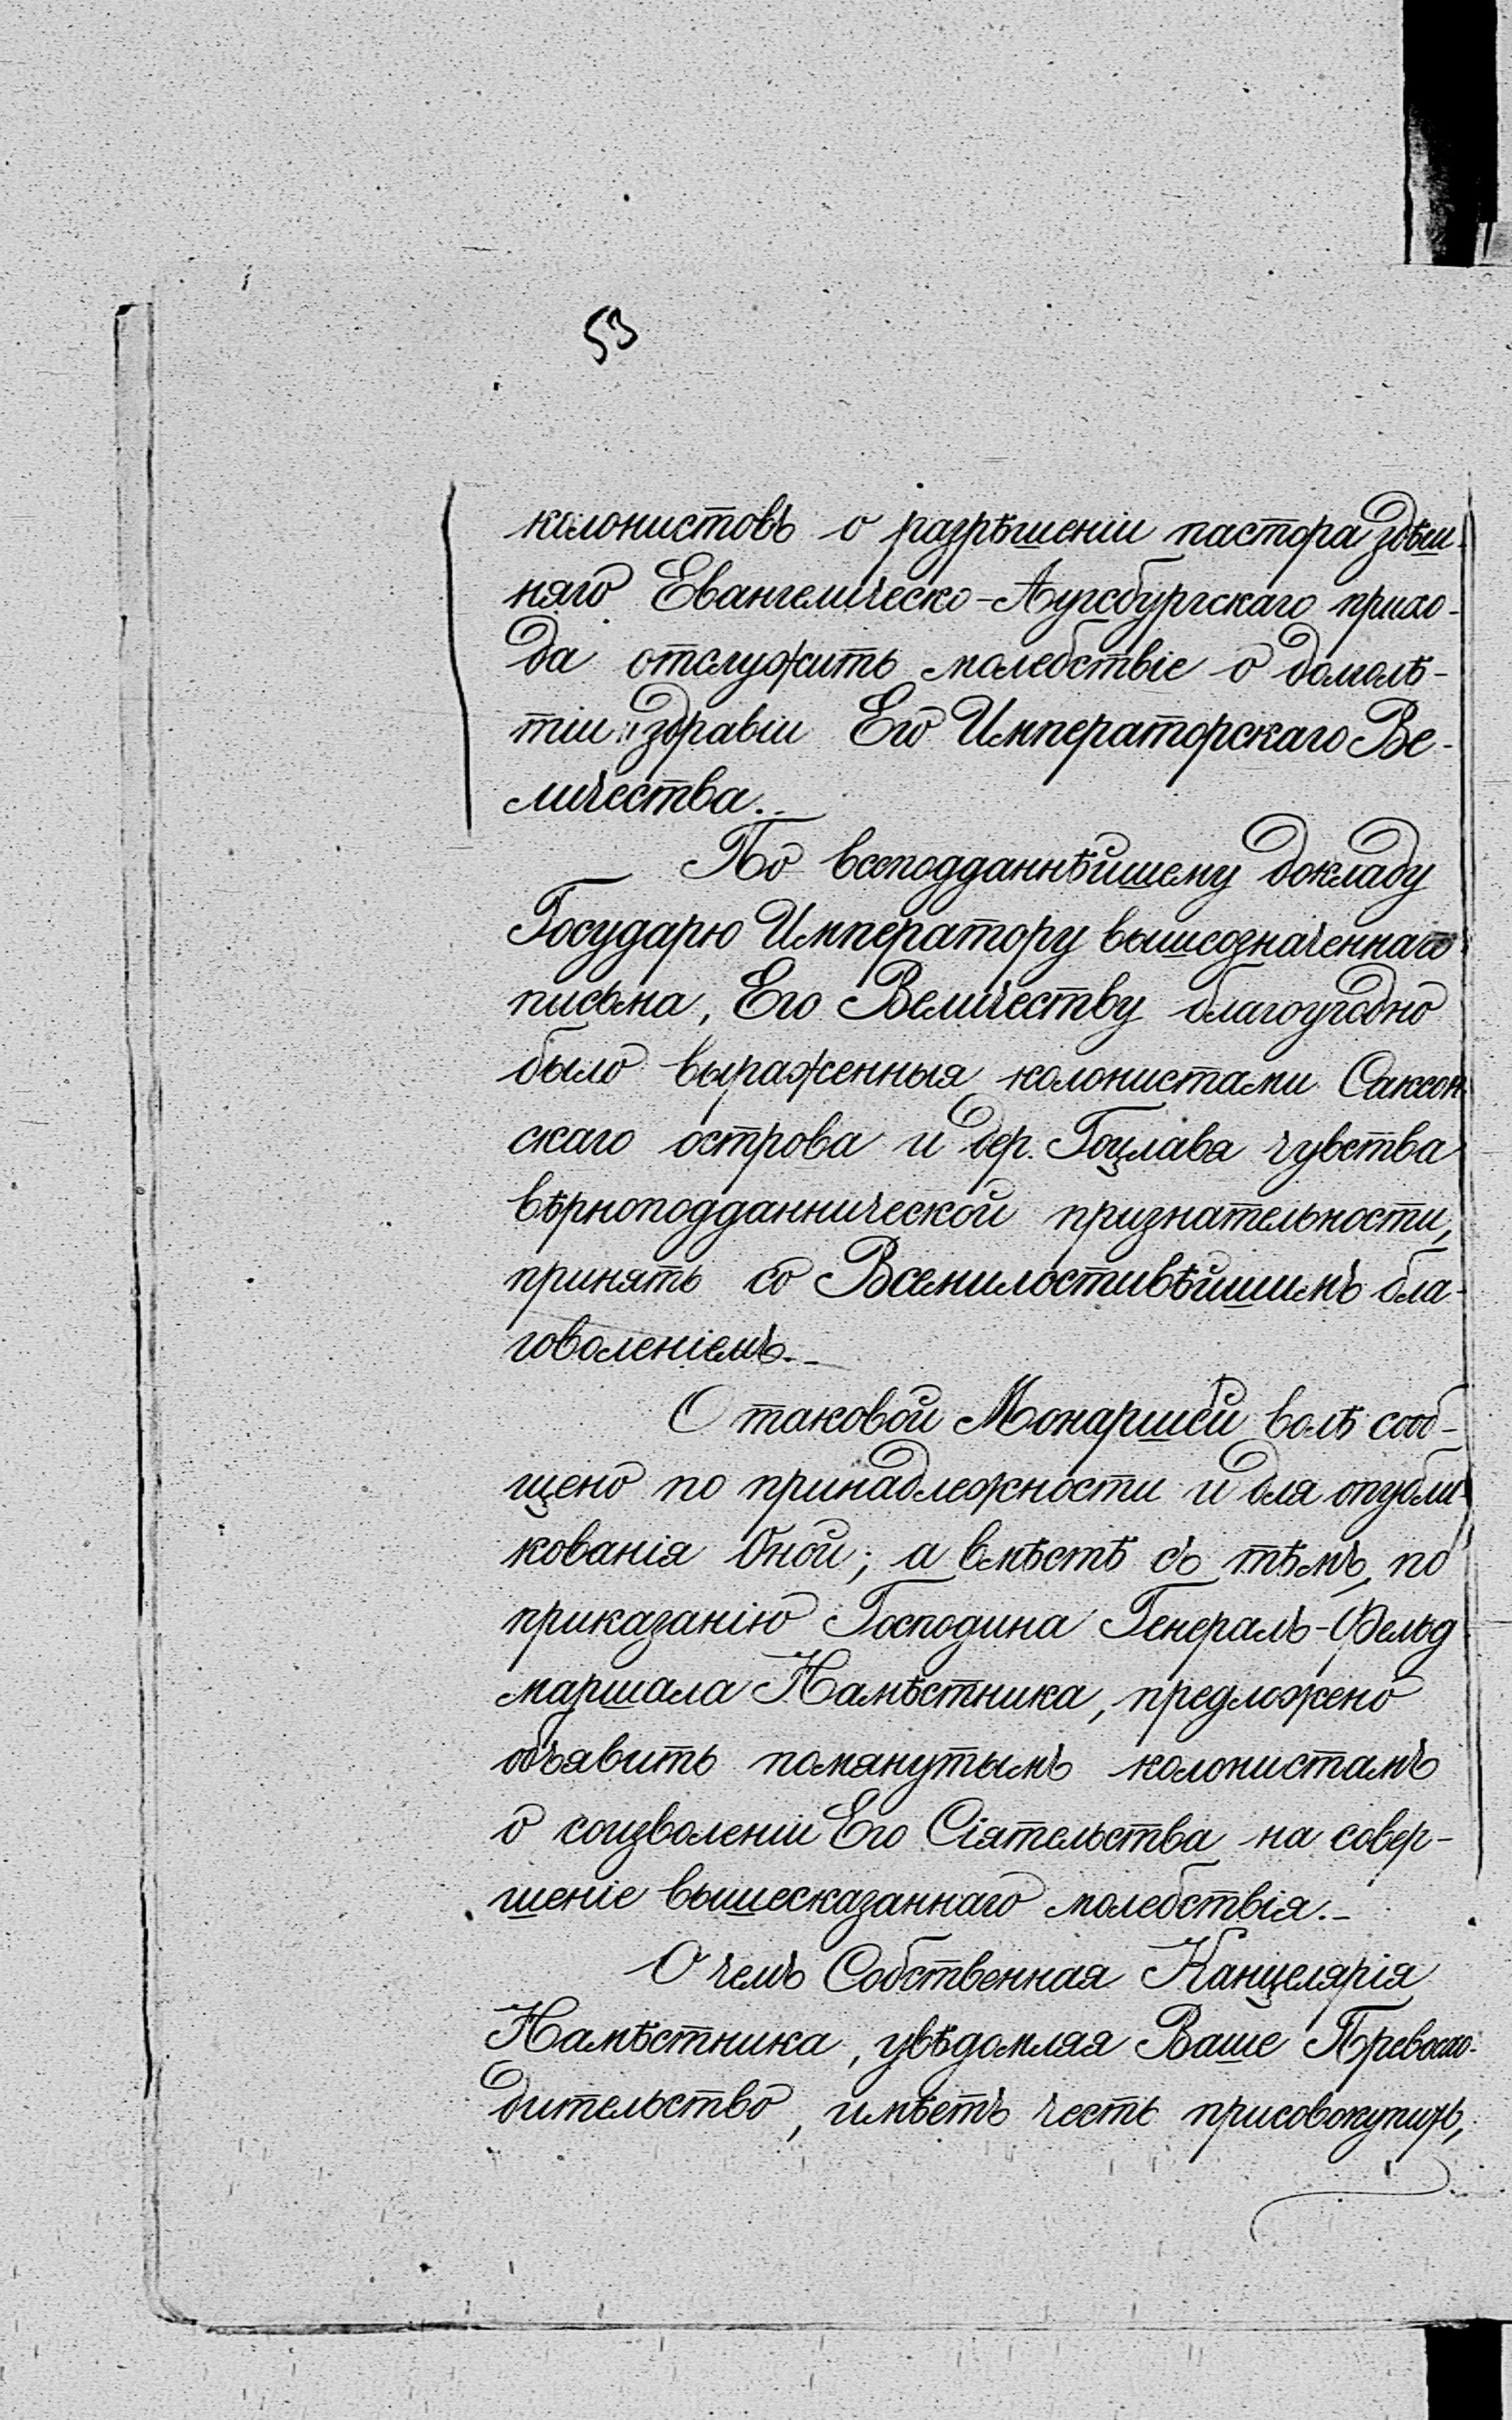 53
колонистовъ о разрѣшеніи пастора здѣш-
няго Евангелическо-Аугсбургскаго прихо-
да отслужить молебствіе о долголѣ-
тіи и здравіи Его Императорскаго Ве-
личества.
По всеподданнѣйшему докладу
Государю Императору вышеозначеннаго
письма, Его Величеству благоугодно
было выраженныя колонистами Саксон
скаго острова и дер. Гоцлава чувства
вѣрноподданнической признательности,
принять со Всемилостивѣйшимъ бла-
говоленіемъ.
О таковой Монаршей волѣ сооб-
щено по принадлежности и для опубли-
кованія оной; а вмѣстѣ съ тѣмъ, по
приказанію Господина Генералъ-Фельд
маршала Намѣстника, предложено
объявить помянутымъ колонистамъ
о соизволеніи Его Сіятельства на совер-
шеніе вышесказаннаго молебствія.
О чемъ Собственная Канцелярія
Намѣстника, увѣдомляя Ваше Превосхо-
дительство, имѣетъ честь присовокупить,